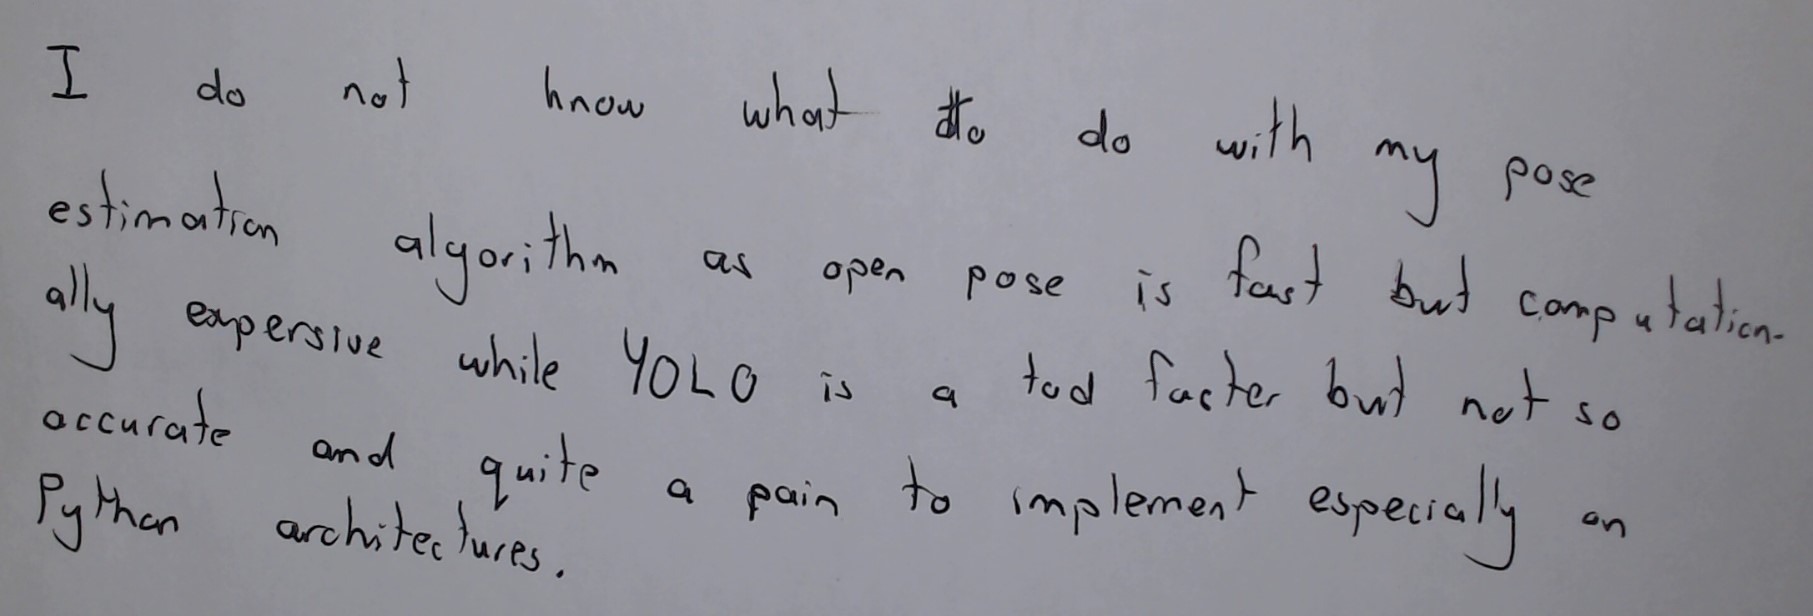 I do not know what to do with my pose
estimation algorithm as open pose is fast but computation-
ally expensive while YOLO is a tad faster but not so
accurate and quite a pain to implement especially on
Python architectures.